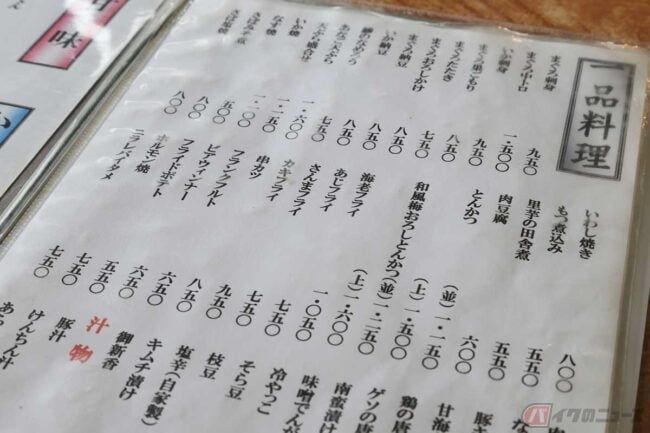 一品料理
まぐろ刺身 九五〇
まぐろ中トロ 一・五〇〇
いか刺身 九五〇
まぐろ巣ごもり 八五〇
まぐろたたき 七五〇
まぐろおろしかけ 八五〇
まぐろ納豆 八五〇
いか納豆 八五〇
七五〇
あなご天ぷら 一・六〇〇
天ぷら盛合せ 一・二五〇
いか焼 一・一〇〇
なす焼 五〇〇
さば塩焼 八〇〇
八〇〇
いわし焼き 八〇〇
もつ煮込み 五五〇
里芋の田舎煮 五五〇
肉豆腐 六〇〇
とんかつ (並)一・二五〇
(上)一・五〇〇
和風梅おろしとんかつ(並)一・二五〇
(上)一・六〇〇
海老フライ 一・〇五〇
あじフライ 七五〇
さんまフライ 七五〇
カキフライ 九五〇
串カツ 八五〇
フランクフルト 六五〇
ビアウィンナー 六五〇
フライドポテト 五五〇
ホルモン焼 七五〇
ニラレバイタメ 七五〇
豚
甘海
鶏の唐
ゲソの唐
南蛮漬け
味噌でんが
冷やっこ
そら豆
枝豆
塩辛(自家製)
キムチ漬け
御新香
汁物
豚汁
けんちん汁
あら
味
バイクのニュース